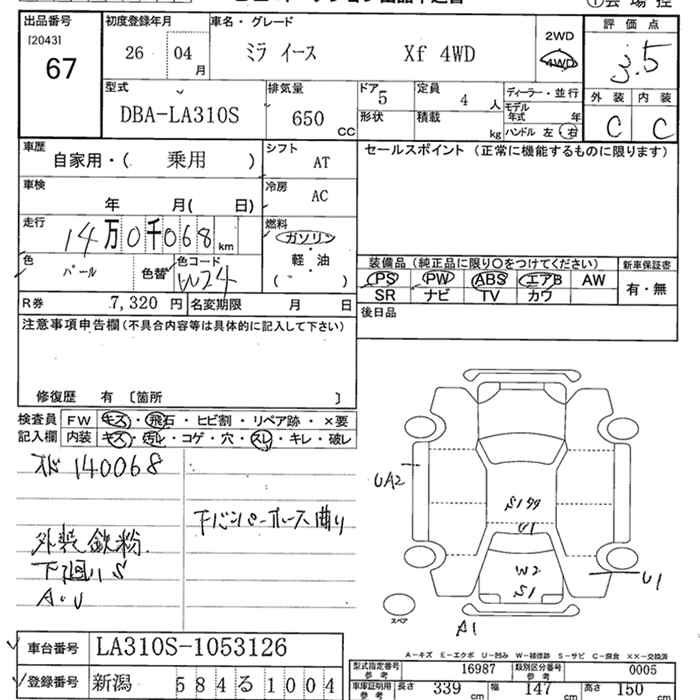 出品番号
[2043]
67
初度登録年月
26 04 月
車名・グレード
ミラ イース Xf 4WD
2WD
4WD
評価点
3.5
外装 内装
C C
型式
DBA-LA310S
排気量
650 CC
ドア 5
定員 4 人
形状
積載 kg
ディーラー・並行
モデル年式 年
ハンドル 左 右
車歴
自家用・( 乗用 )
シフト
AT
車検
年 月( 日)
冷房
AC
走行
14万0千068 km
燃料
ガソリン
軽・油
( )
色
パール
色替
色コード
W24
R券 7,320 円
名変期限 月 日
セールスポイント (正常に機能するものに限ります)
装備品 (純正品に限り○をつけてください)
PS PW ABS エアB AW
SR ナビ TV カワ
新車保証書
有・無
後日品
注意事項申告欄 (不具合内容等は具体的に記入して下さい)
修復歴 有 [箇所 ]
検査員
記入欄
FW キズ・飛石・ヒビ割・リペア跡・×要
内装 キズ・汚レ・コゲ・穴・スレ・キレ・破レ
140068
下バンパーホース曲り
外装鉄粉
下廻りS
A・U
UA2
S1
U1
W2
S1
U1
A1
スペア
A-キズ E-エクボ U-凹み W-補修跡 S-サビ C-腐食 ××-交換済
車台番号 LA310S-1053126
登録番号 新潟 584る1004
型式指定番号 参考 16987
類別区分番号 参考 0005
車庫証明用 参考
長さ 339 cm 幅 147 cm 高さ 150 cm